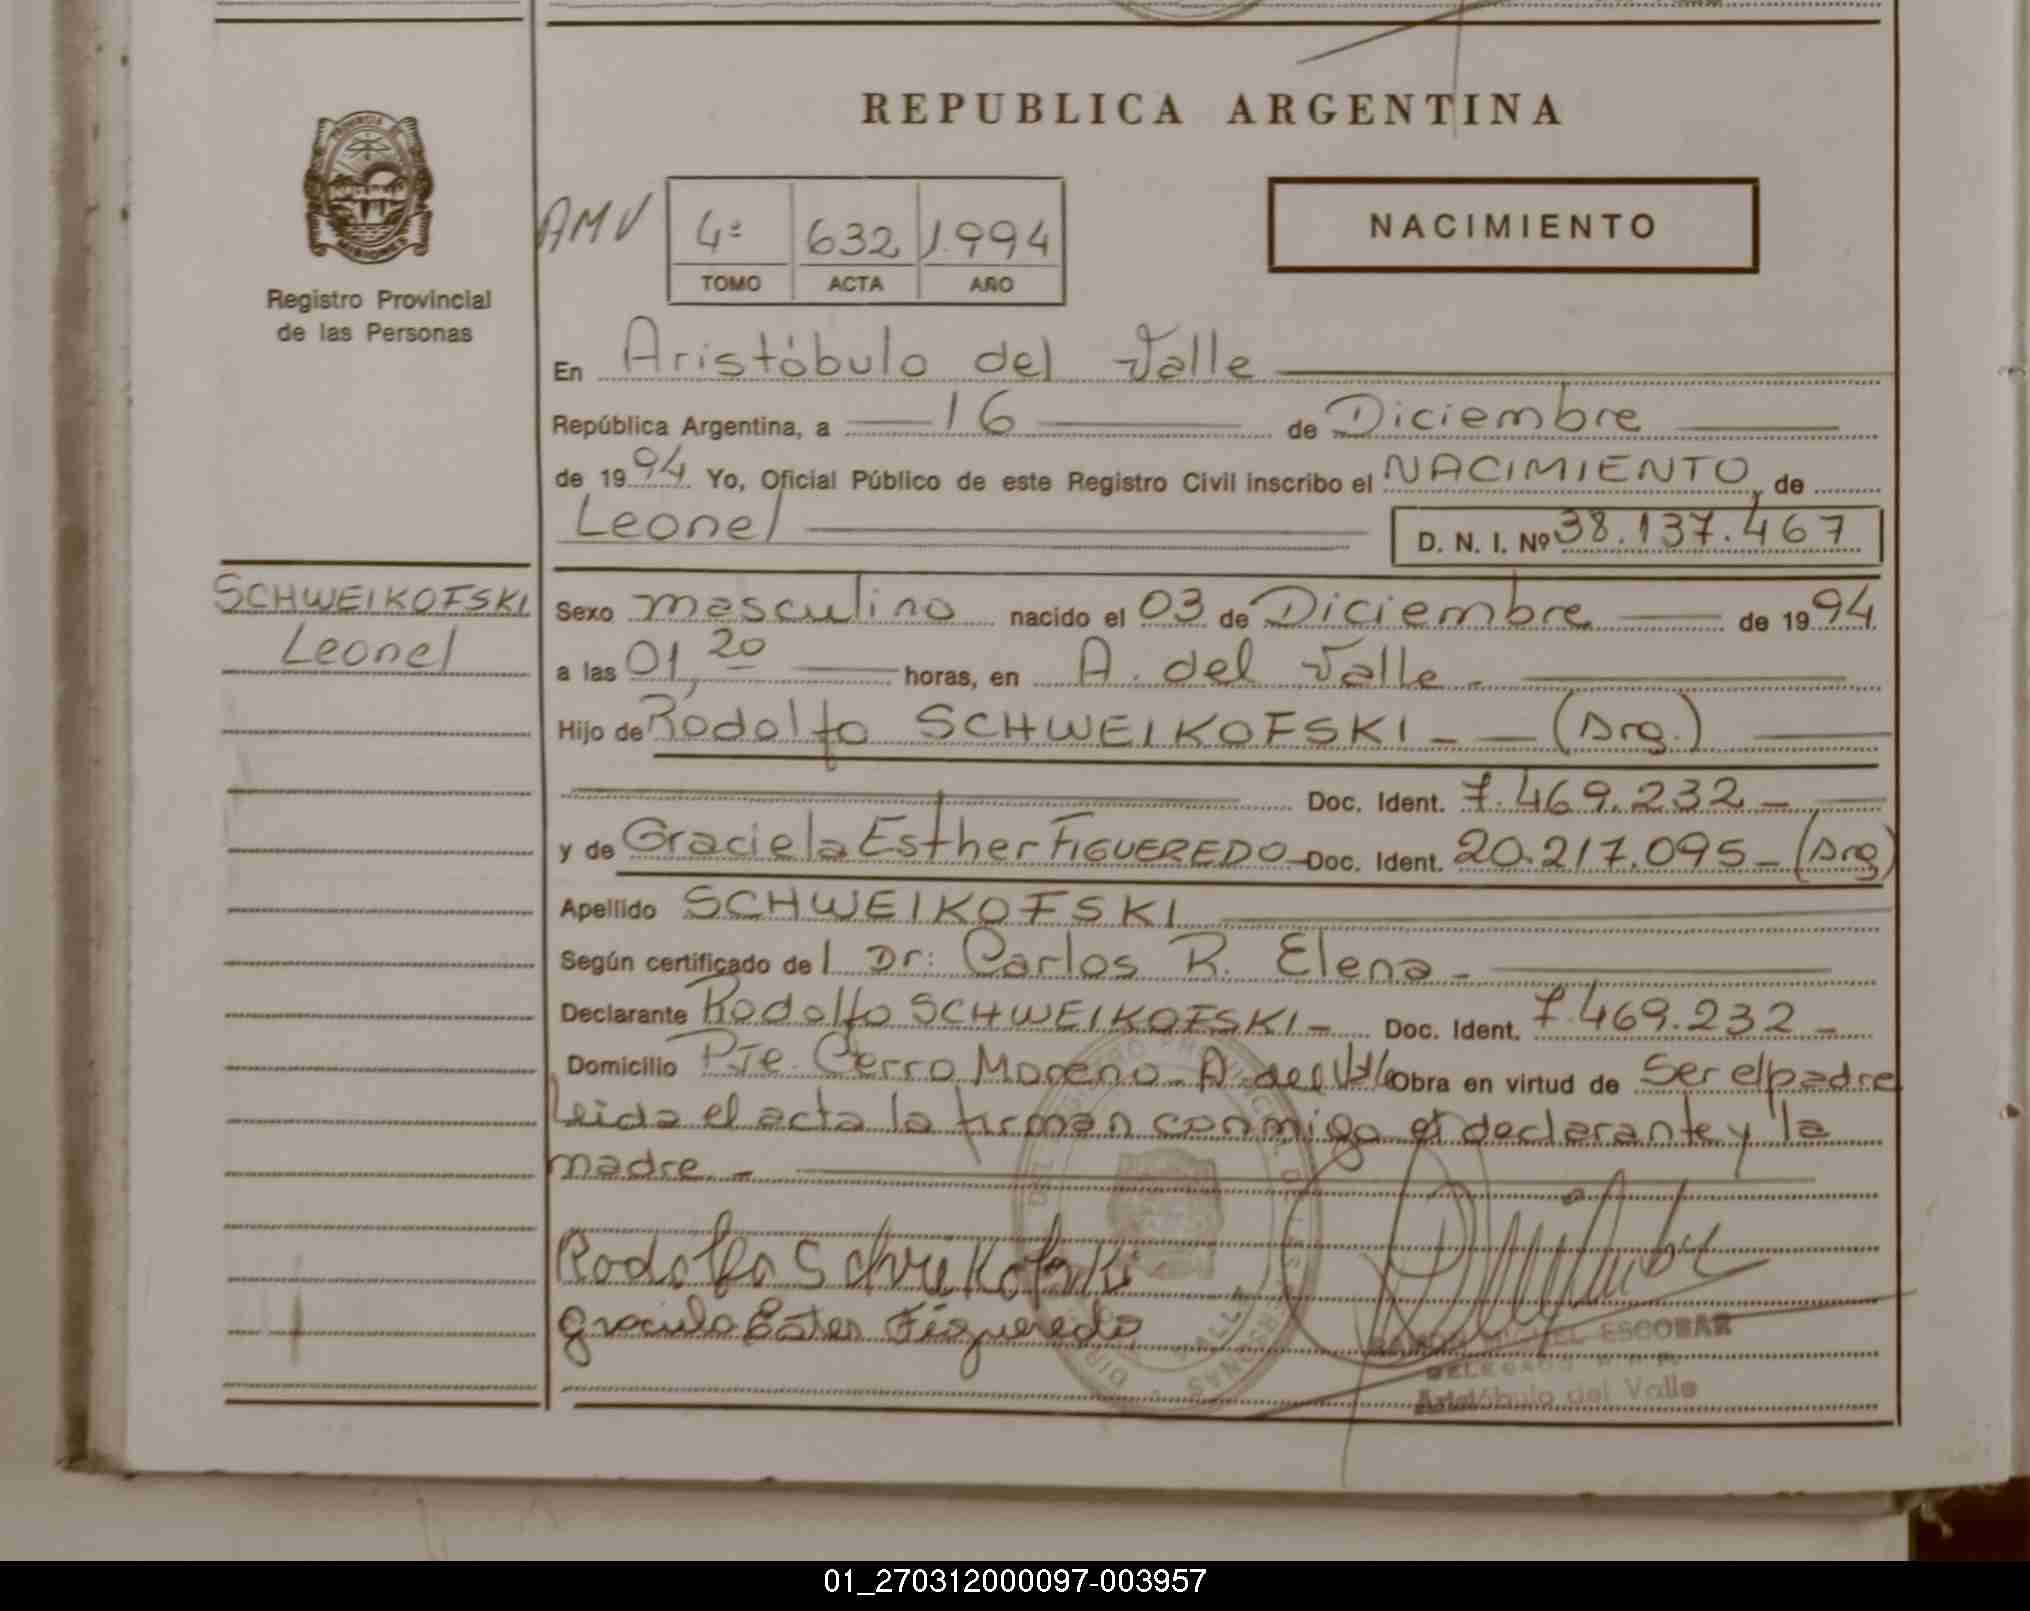 REPUBLICA ARGENTINA
PROVINCIA DE
MISIONES
Registro Provincial
de las Personas
AMV
4º 632 1.994
TOMO ACTA AÑO
NACIMIENTO
En Aristóbulo del Valle
República Argentina, a 16 de Diciembre
de 1994 Yo, Oficial Público de este Registro Civil inscribo el NACIMIENTO, de
Leonel D. N. I. Nº 38.137.467
SCHWEIKOFSKI
Leonel
Sexo masculino nacido el 03 de Diciembre de 1994
a las 01,20 horas, en A. del Valle.
Hijo de Rodolfo SCHWEIKOFSKI - (Arg.)
Doc. Ident. 7.469.232 -
y de Graciela Esther FIGUEREDO Doc. Ident. 20.217.095 - (Arg)
Apellido SCHWEIKOFSKI
Según certificado del Dr: Carlos R. Elena -
Declarante Rodolfo SCHWEIKOFSKI - Doc. Ident. 7.469.232 -
Domicilio Pje. Cerro Moreno - A. del Valle Obra en virtud de Ser el padre
Leida el acta la firman conmigo el declarante y la
madre. -
Rodolfo Schveikofski
Graciela Ester Figueredo
RAMON MIGUEL ESCOBAR
DELEGADO
Aristóbulo del Valle
01_270312000097-003957